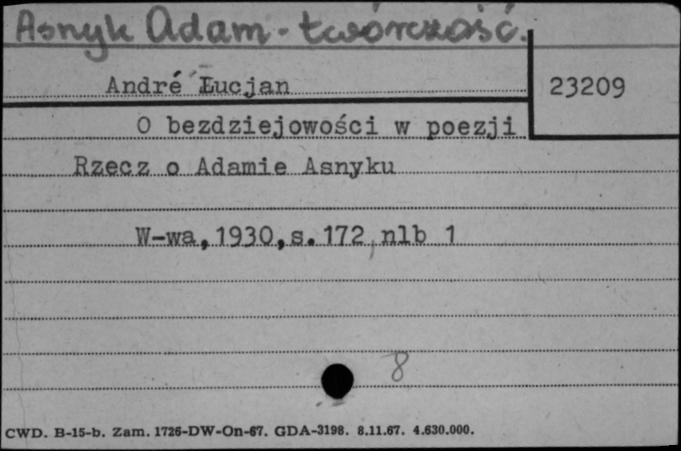 Asnyk Adam - twórczość.
André Łucjan
23209
O bezdziejowości w poezji
Rzecz o Adamie Asnyku
W-wa, 1930, s. 172, nlb 1
8
CWD. B-15-b. Zam. 1726-DW-On-67. GDA-3198. 8.11.67. 4.630.000.